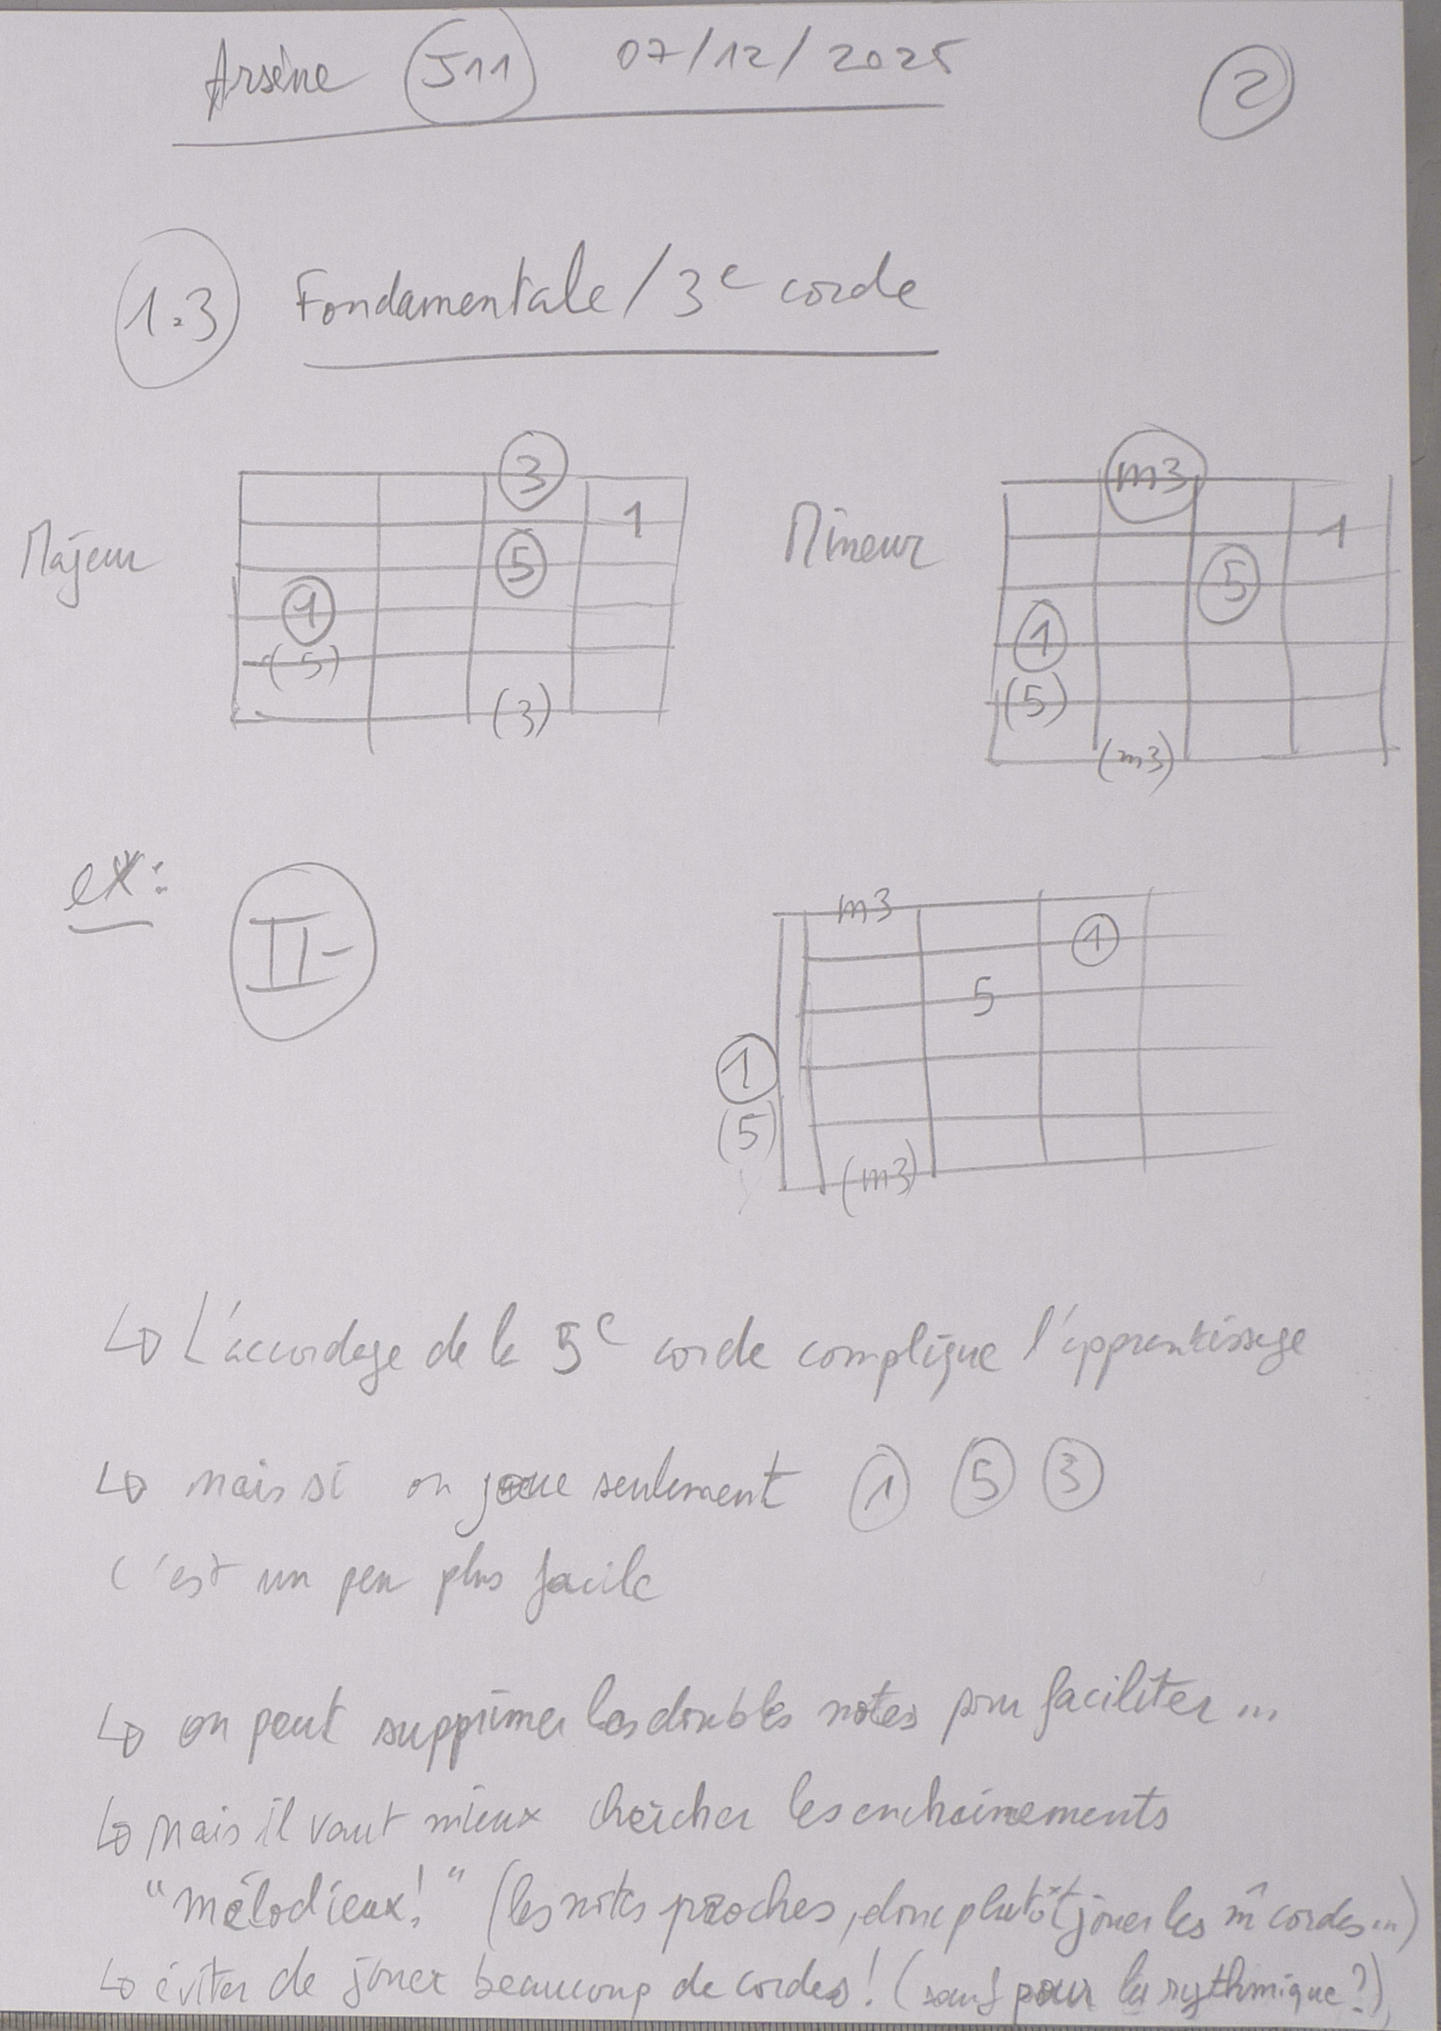 Arsène J11 07/12/2025
2
1.3 Fondamentale / 3e corde
Majeur
3
1
5
1
(5)
(3)
Mineur
m3
1
5
1
(5)
(m3)
ex :
II-
m3
1
5
1
(5)
(m3)
↳ L'accordage de la 5e corde complique l'apprentissage
↳ mais si on joue seulement 1 5 3
c'est un peu plus facile
↳ on peut supprimer les doubles notes pour faciliter ...
↳ mais il vaut mieux chercher les enchainements
"mélodieux!" (les notes proches, donc plutôt jouer les m̂ cordes...)
↳ éviter de jouer beaucoup de cordes ! (sauf pour la rythmique ?)